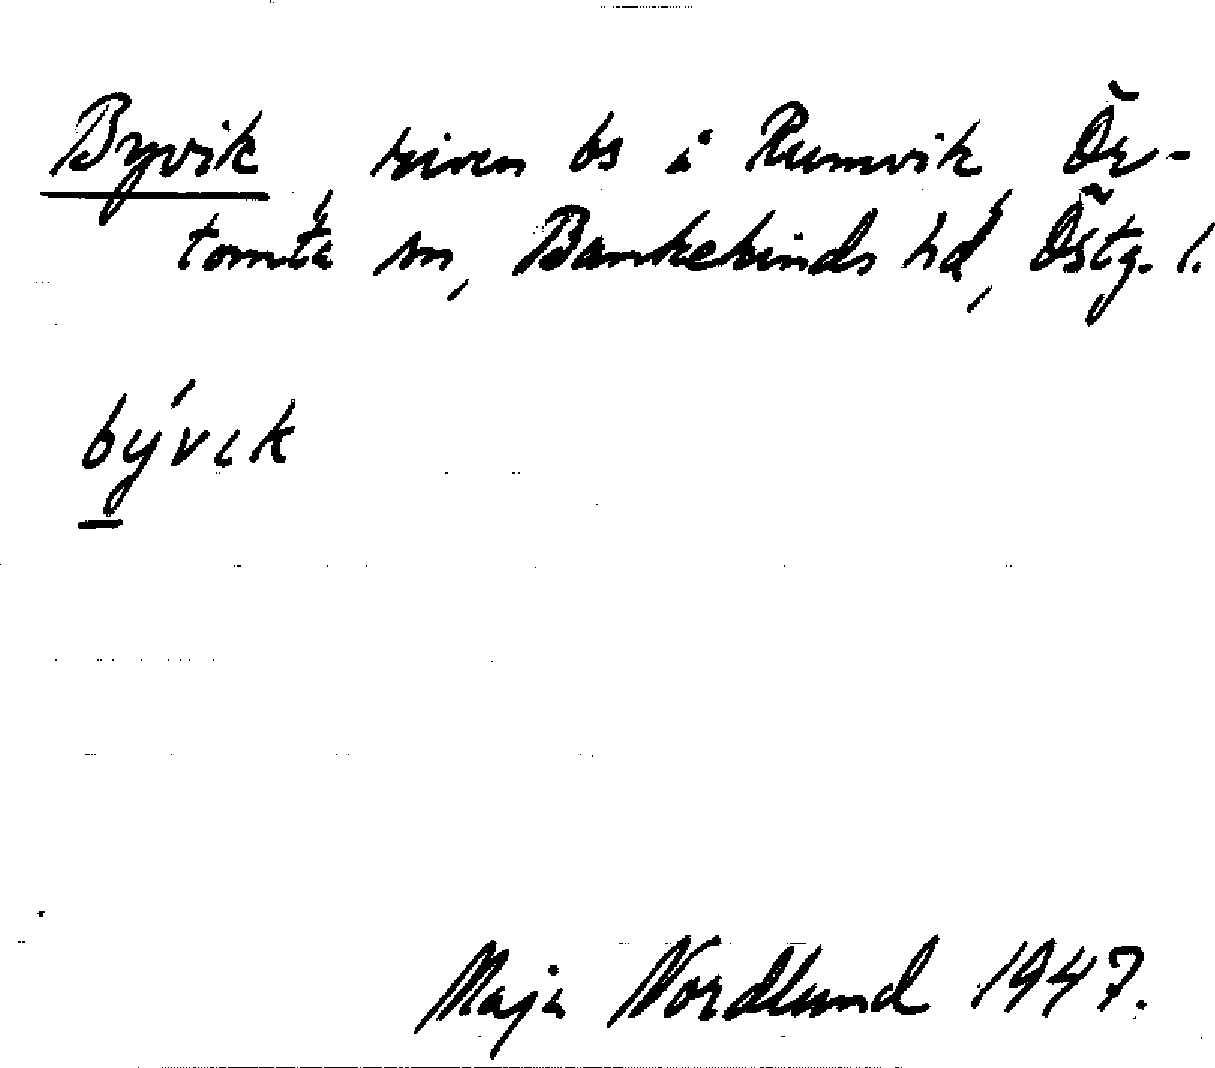 Byvik, riven bs å Rumvik, Ör-
tomta sn, Bankekinds hd, Östg. l.
bývık
Maja Nordlund 1947.